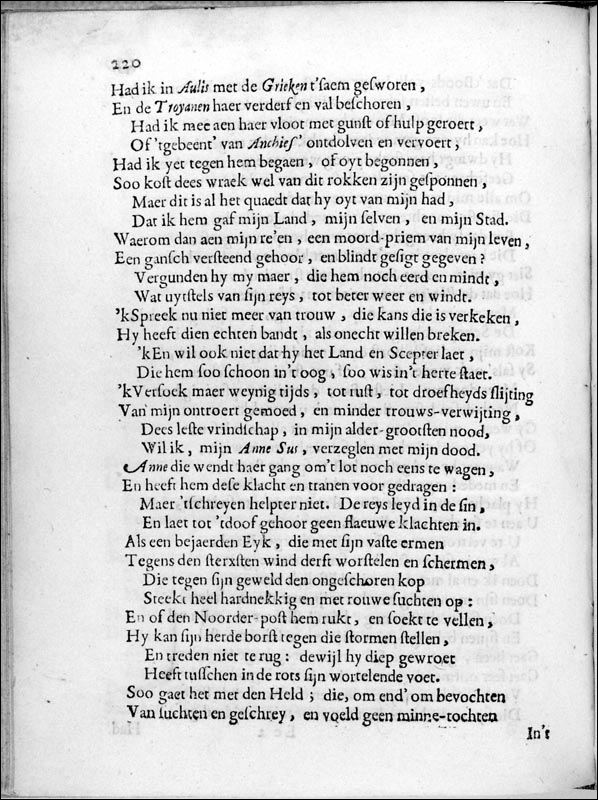 220
Had ik in Aulis met de Grieken t'saem gesworen,
En de Troyanen haer verderf en val beschoren,
Had ik mee aen haer vloot met gunst of hulp geroert,
Of 'tgebeent' van Anchies' ontdolven en vervoert,
Had ik yet tegen hem begaen, of oyt begonnen,
Soo kost dees wraek wel van dit rokken zijn gesponnen,
Maer dit is al het quaedt dat hy oyt van mijn had,
Dat ik hem gaf mijn Land, mijn selven, en mijn Stad.
Waerom dan aen mijn re'en, een moord-priem van mijn leven,
Een gansch versteend gehoor, en blindt gesigt gegeven?
Vergunden hy my maer, die hem noch eerd en mindt,
Wat uytstels van sijn reys, tot beter weer en windt.
'kSpreek nu niet meer van trouw, die kans die is verkeken,
Hy heeft dien echten bandt, als onecht willen breken.
'kEn wil ook niet dat hy het Land en Scepter laet,
Die hem soo schoon in't oog, soo wis in't herte staet.
'kVersoek maer weynig tijds, tot rust, tot droefheyds slijting
Van mijn ontroert gemoed, en minder trouws-verwijting,
Dees leste vrindschap, in mijn alder-grootsten nood,
Wil ik, mijn Anne Sus, verzeglen met mijn dood.
Anne die wendt haer gang om't lot noch eens te wagen,
En heeft hem dese klacht en tranen voor gedragen:
Maer 'tschreyen helpter niet. De reys leyd in de sin,
En laet tot 'tdoof gehoor geen slaeuwe klachten in.
Als een bejaerden Eyk, die met sijn vaste ermen
Tegens den sterxsten wind derft worstelen en schermen,
Die tegen sijn geweld den ongeschoren kop
Steekt heel hardnekkig en met rouwe suchten op:
En of den Noorder-post hem rukt, en soekt te vellen,
Hy kan sijn herde borst tegen die stormen stellen,
En treden niet te rug: dewijl hy diep gewroet
Heeft tusschen in de rots sijn wortelende voet.
Soo gaet het met den Held; die, om end' om bevochten
Van suchten en geschrey, en voeld geen minne-tochten
In't